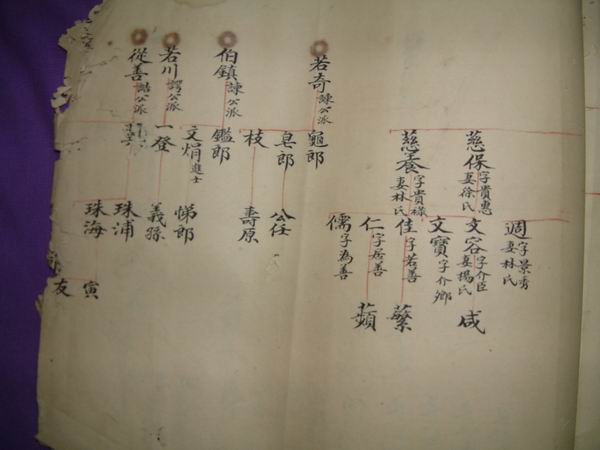 週字景秀
妻林氏
慈保字貴惠
妻徐氏
文容字介臣
妻楊氏
咸
文寶字介鄉
慈養字貴祿
妻林氏
佳字若善
蘩
仁字居善
蘋
儒字為善
若奇諫公派
龜郎
皂郎
公任
枝
壽原
伯鎮諫公派
鑑郎
文焆進士
悌郎
若川諤公派
一登
義孫
從善誥公派
珠浦
珠海
寅
友